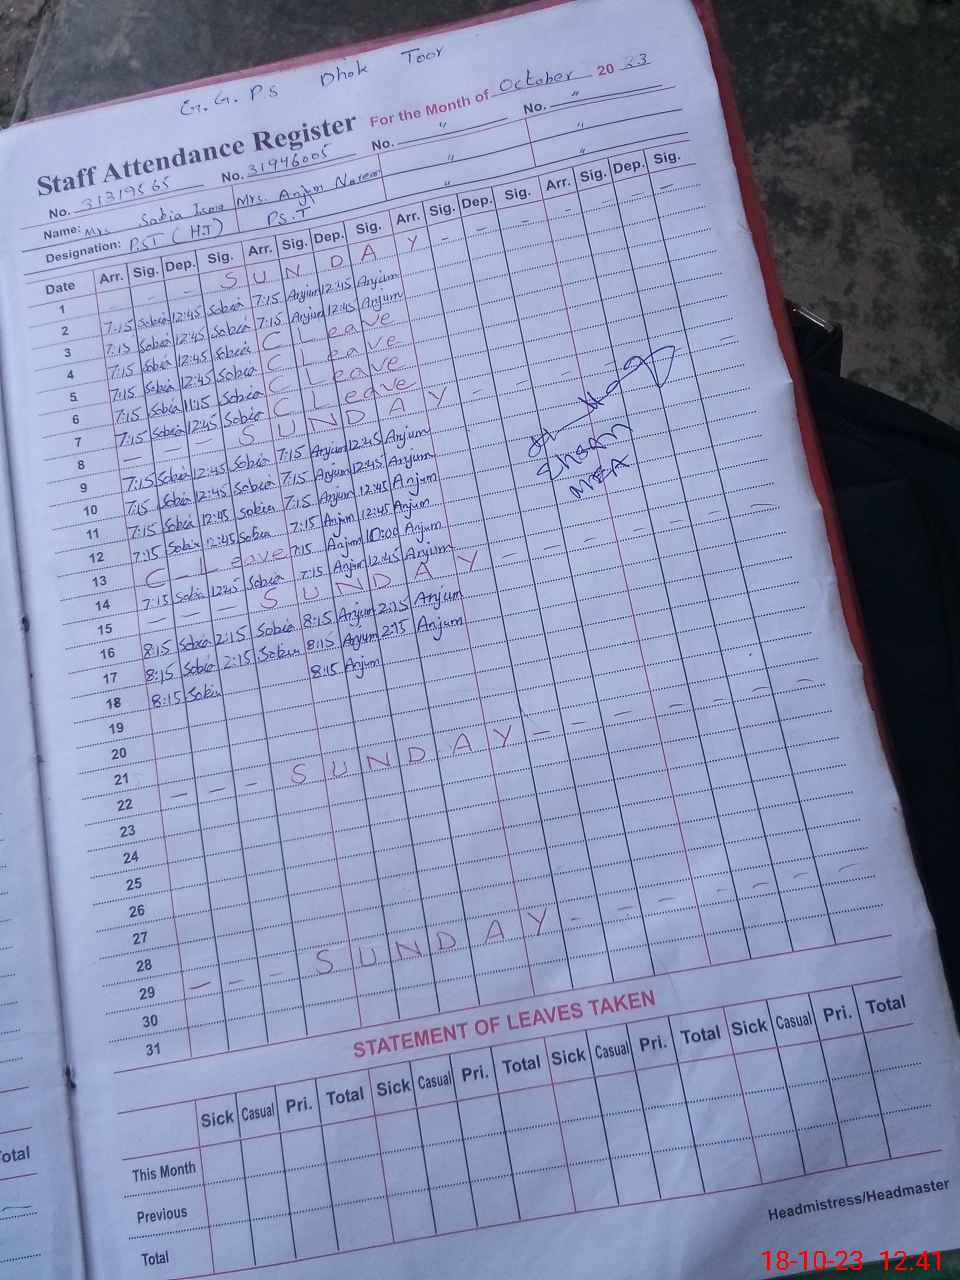 G.G.PS Dhok Toor
Staff Attendance Register For the Month of October 20 23
No. 31319565 No. 31946005 No. " No. "
Name: Mrs Sobia Isma Mrs. Anjum Noreen " "
Designation: PST (HT) PS.T " "
Date Arr. Sig. Dep. Sig. Arr. Sig. Dep. Sig. Arr. Sig. Dep. Sig. Arr. Sig. Dep. Sig.
1 - - - S U N D A Y - - - - - - -
2 7:15 Sobia 12:45 Sobia 7:15 Anjum 12:45 Anjum
3 7:15 Sobia 12:45 Sobia 7:15 Anjum 12:45 Anjum
4 7:15 Sobia 12:45 Sobia C Leave
5 7:15 Sobia 12:45 Sobia C Leave
6 7:15 Sobia 11:15 Sobia C Leave
7 7:15 Sobia 12:45 Sobia C Leave
8 - - - S U N D A Y - - - - - - -
9 7:15 Sobia 12:45 Sobia 7:15 Anjum 12:45 Anjum
10 7:15 Sobia 12:45 Sobia 7:15 Anjum 12:45 Anjum
11 7:15 Sobia 12:45 Sobia 7:15 Anjum 12:45 Anjum
12 7:15 Sobia 12:45 Sobia 7:15 Anjum 12:45 Anjum
13 C - Leave 7:15 Anjum 10:00 Anjum
14 7:15 Sobia 12:45 Sobia 7:15 Anjum 12:45 Anjum
15 - - - S U N D A Y - - - - - - -
16 8:15 Sobia 2:15 Sobia 8:15 Anjum 2:15 Anjum
17 8:15 Sobia 2:15 Sobia 8:15 Anjum 2:15 Anjum
18 8:15 Sobia 8:15 Anjum
19
20
21
22 - - - S U N D A Y - - - - - - -
23
24
25
26
27
28
29 - - - S U N D A Y - - - - - - -
30
31
MEA
STATEMENT OF LEAVES TAKEN
Sick Casual Pri. Total Sick Casual Pri. Total Sick Casual Pri. Total Sick Casual Pri. Total
This Month
Previous
Total
Headmistress/Headmaster
otal
18-10-23 12:41